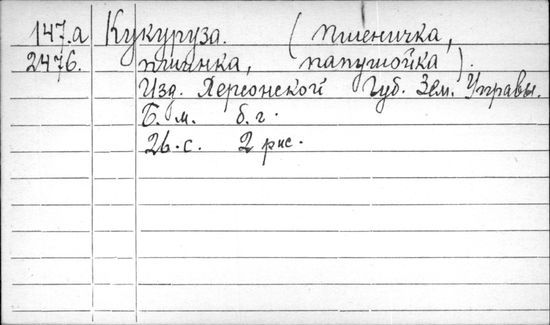 147.а Кукуруза. (пшеничка,
2476. пшинка, папушойка).
Изд. Херсонской Губ. Зем. Управы.
Б. м. б. г.
26. с. 2 рис.